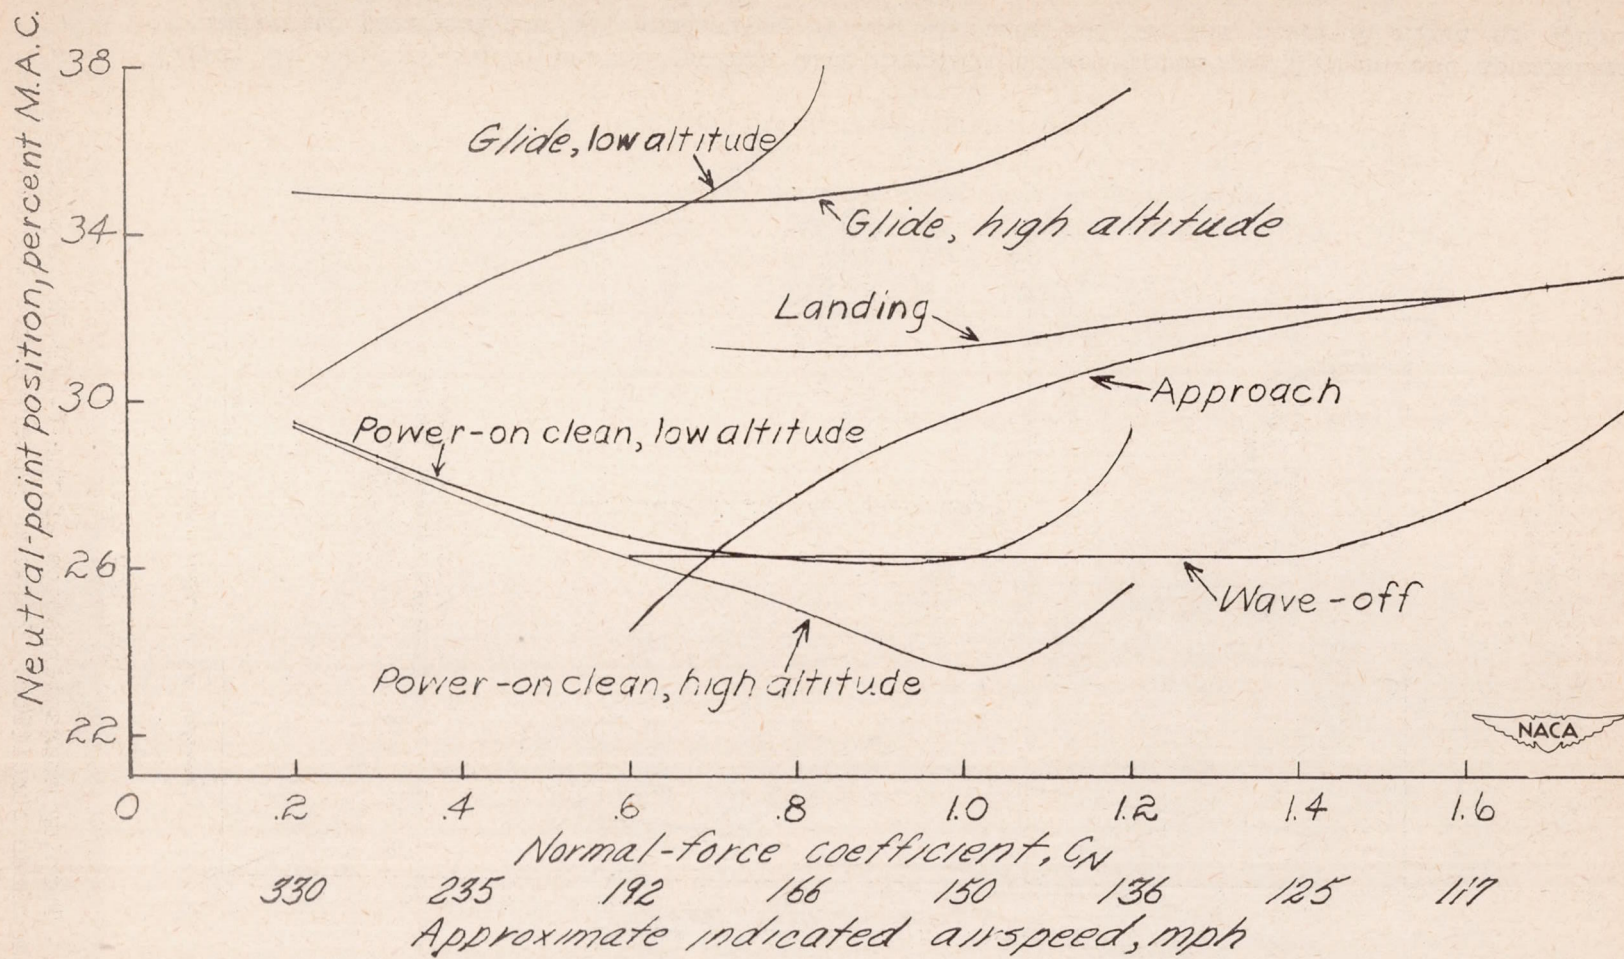 Neutral-point position, percent M.A.C.
38
34
30
26
22
Glide, low altitude
Glide, high altitude
Landing
Approach
Power-on clean, low altitude
Wave-off
Power-on clean, high altitude
NACA
0 .2 .4 .6 .8 1.0 1.2 1.4 1.6
Normal-force coefficient, CN
330 235 192 166 150 136 125 117
Approximate indicated airspeed, mph